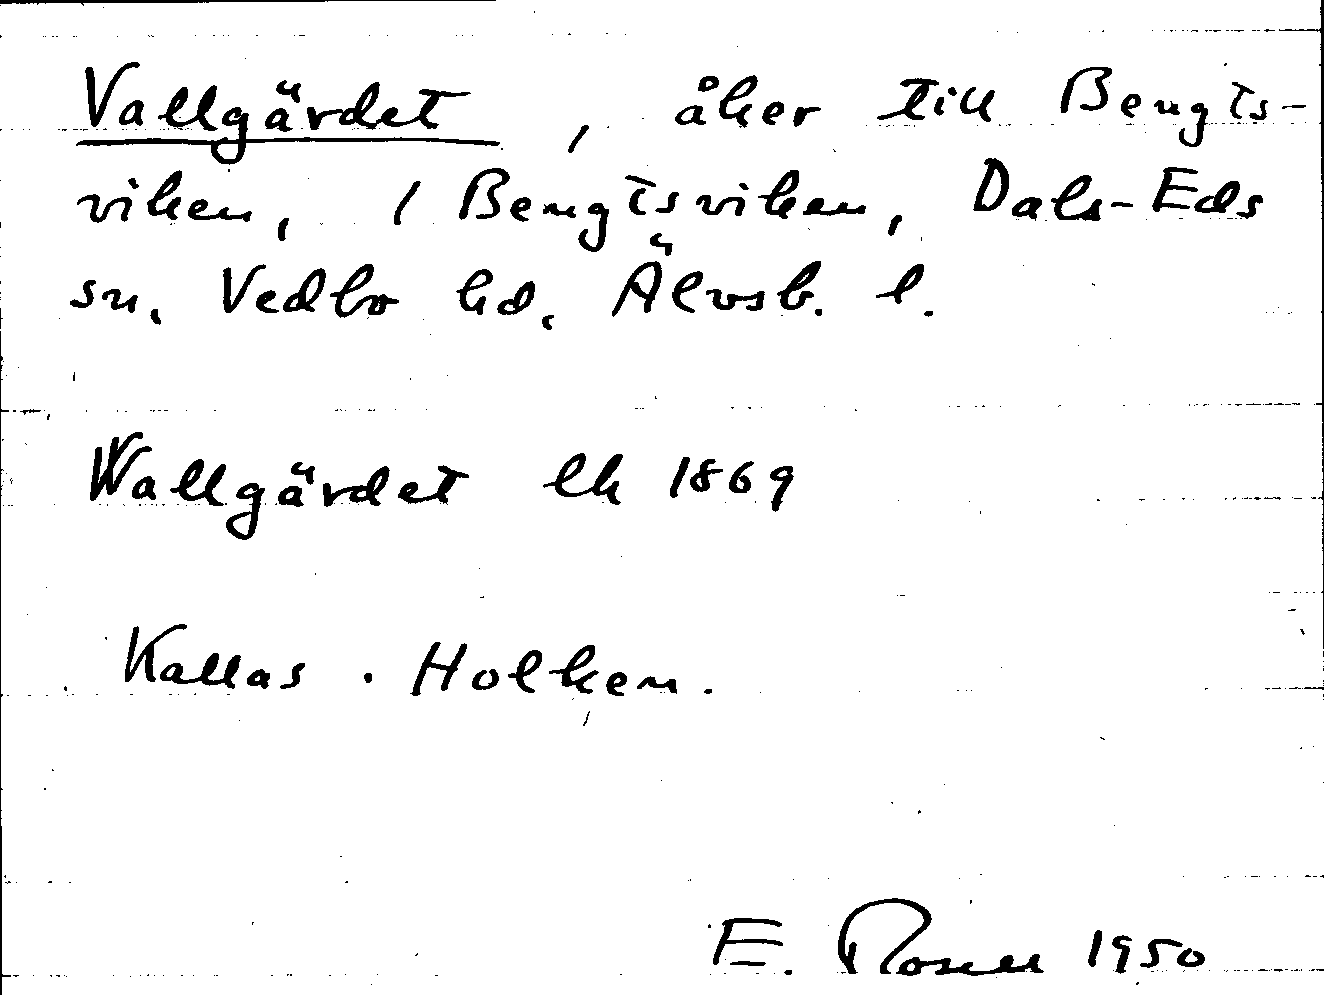 Vallgärdet, åker till Bengts-
viken, 1 Bengtsviken, Dals-Eds
sn. Vedbo hd. Älvsb. l.
Wallgärdet lk 1869
Kallas . Holken.
E. Rosell 1950